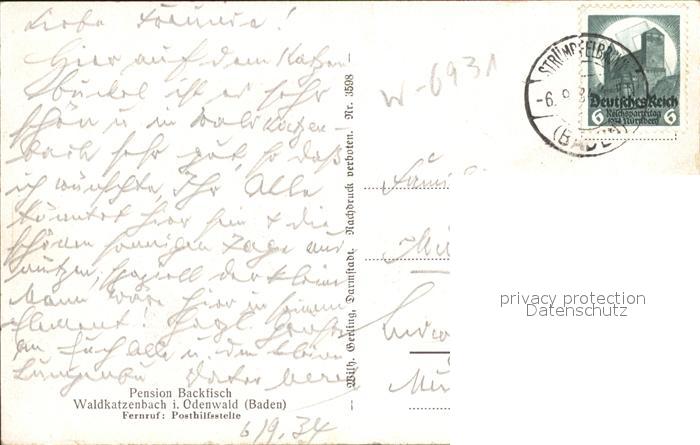 Liebe Freunde!
Hier auf dem Katzen
buckel ist es sehr
schön u in Waldkatzen
bach sehr gut, so daß
ich wünschte, Ihr Alle
könntet hier sein & die
schönen sonnigen Tage aus
nutzen, speziell der kleine
Mann wäre hier in seinem
Element! Herzl. Grüße
an Euch alle u. den kleinen
Pension Backfisch
Waldkatzenbach i. Odenwald (Baden)
Fernruf: Posthilfsstelle
6/9.34
Wilh. Gerling, Darmstadt. Nachdruck verboten. Nr. 3598
W-6931
STRÜMPFELBRUNN
-6. 9. 3
(BADEN)
Deutsches Reich
Reichsparteitag
1934 Nürnberg
6 6
privacy protection
Datenschutz